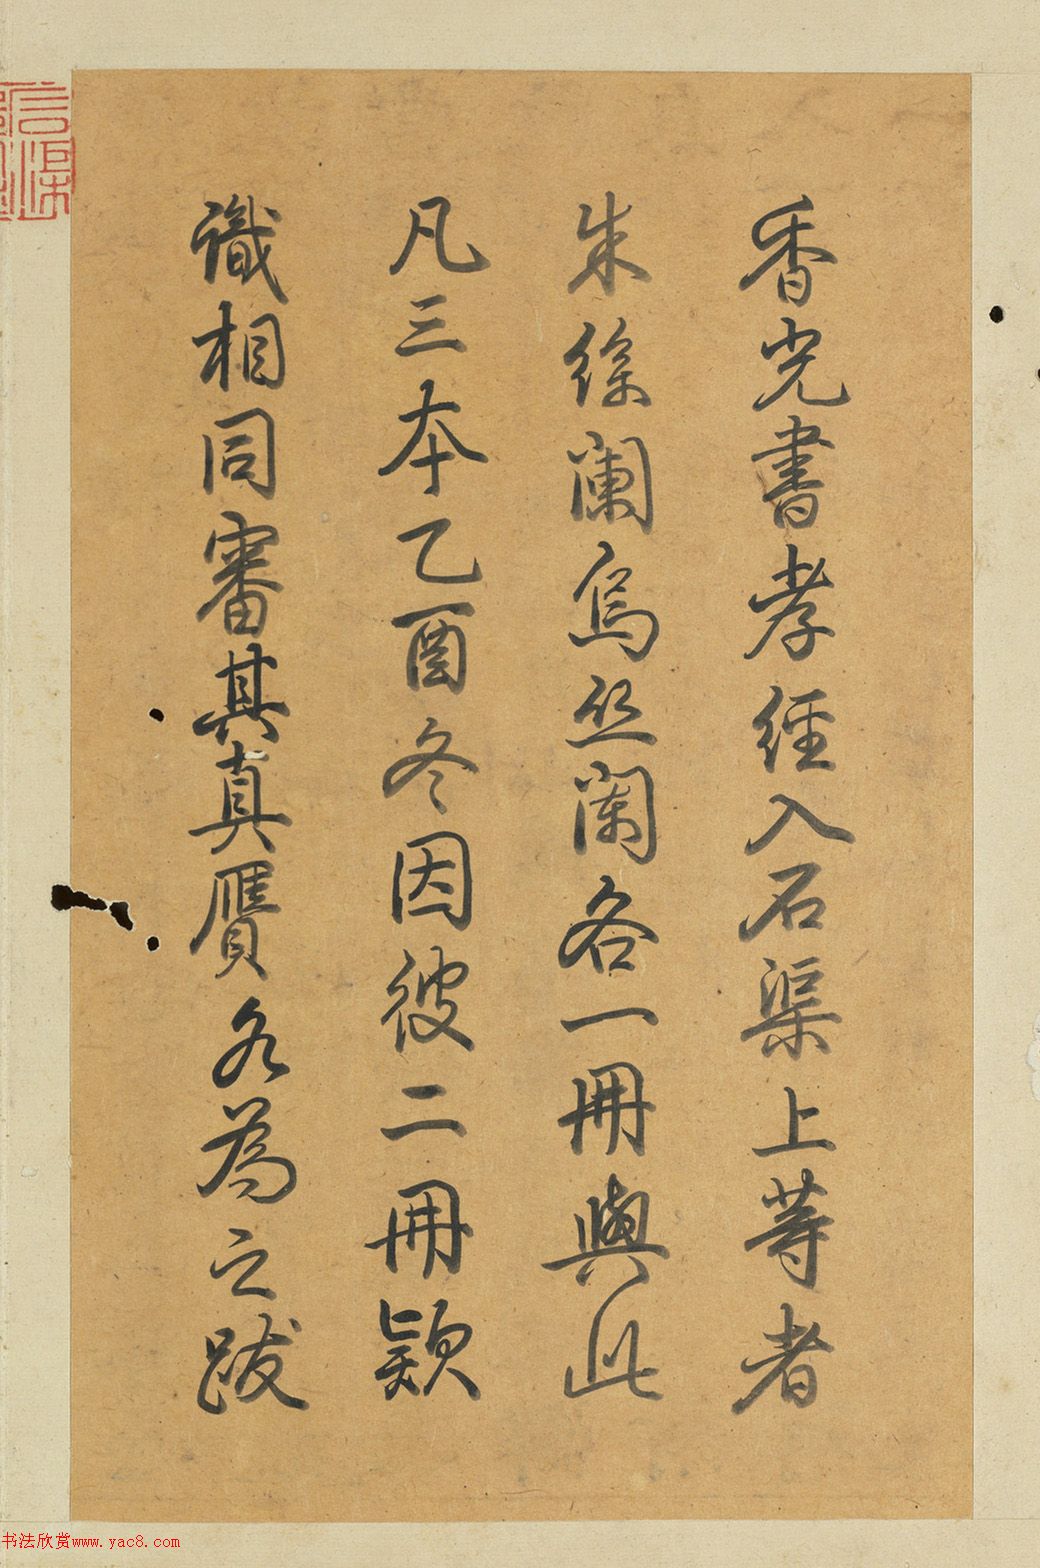 香光書孝經入石渠上等者
朱絲闌烏絲闌各一冊與此
凡三本乙酉冬因彼二冊款
識相同審其真贋各為之跋
书法欣赏www.yac8.com